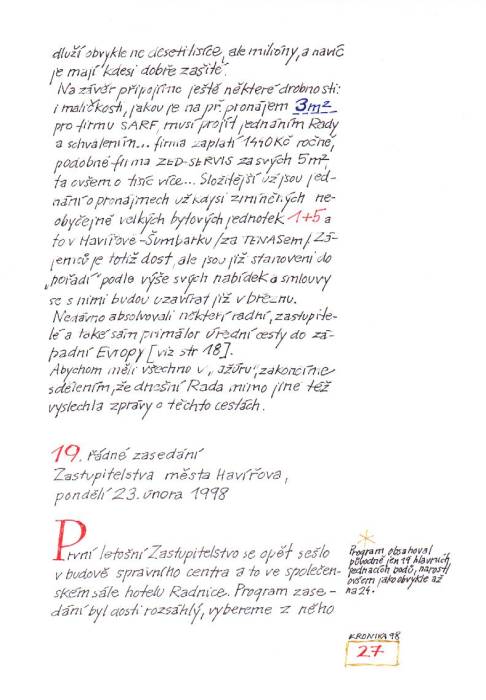 dluží obvykle ne desetitisíce, ale milióny, a navíc
je mají kdesi dobře zašité.
Na závěr připojíme ještě některé drobnosti:
i maličkosti, jakou je na př. pronájem 3m²
pro firmu SARF, musí projít jednáním Rady
a schválením... firma zaplatí 1440 Kč ročně,
podobně firma ZED-SERVIS za svých 5m²,
ta ovšem o tisíc více... Složitější už jsou jed-
nání o pronájmech už kdysi zmíněných ne-
obyčejně velkých bytových jednotek 1+5 a
to v Havířově-Šumbarku /za TENASem/. Zá-
jemců je totiž dost, ale jsou již stanoveni do
„pořadí" podle výše svých nabídek a smlouvy
se s nimi budou uzavírat již v březnu.
Nedávno absolvovali někteří radní, zastupite-
lé a také sám primátor úřední cesty do zá-
padní Evropy [viz str 18].
Abychom měli všechno v „ažúru", zakončíme
sdělením, že dnešní Rada mimo jiné též
vyslechla zprávy o těchto cestách.
19. řádné zasedání
Zastupitelstva města Havířova,
pondělí 23. února 1998
První letošní Zastupitelstvo se opět sešlo
v budově správního centra a to ve společen-
ském sále hotelu Radnice. Program zase-
dání byl dosti rozsáhlý, vybereme z něho
Program obsahoval
původně jen 19 hlavních
jednacích bodů, narostl
ovšem jako obvykle až
na 24.
KRONIKA 98
27